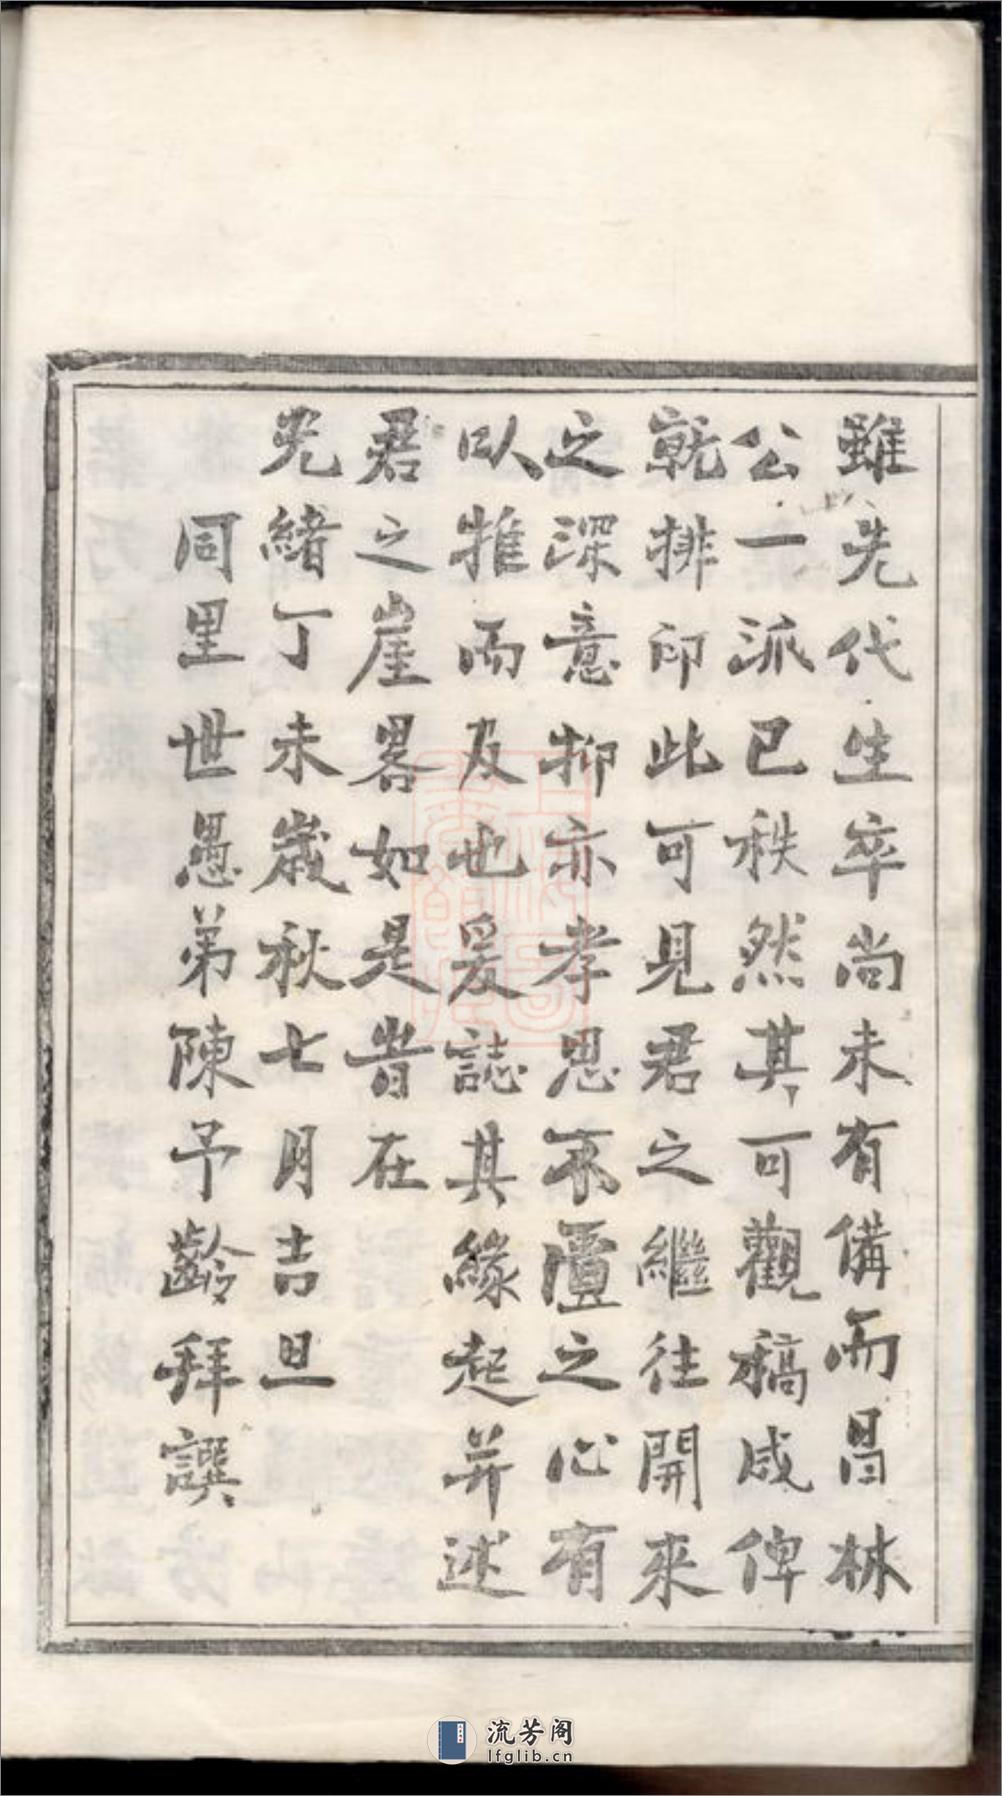 雖先代生卒尚未有備而昌林
公一派已秩然其可觀稿咸俾
就排印此可見君之繼往開來
之深意抑亦孝思不匱之心有
以推而及也爰誌其緣起并述
君之崖畧如是旹在
光緒丁未歲秋七月吉旦
同里世愚弟陳予齡拜譔
流芳阁
lfglib.cn